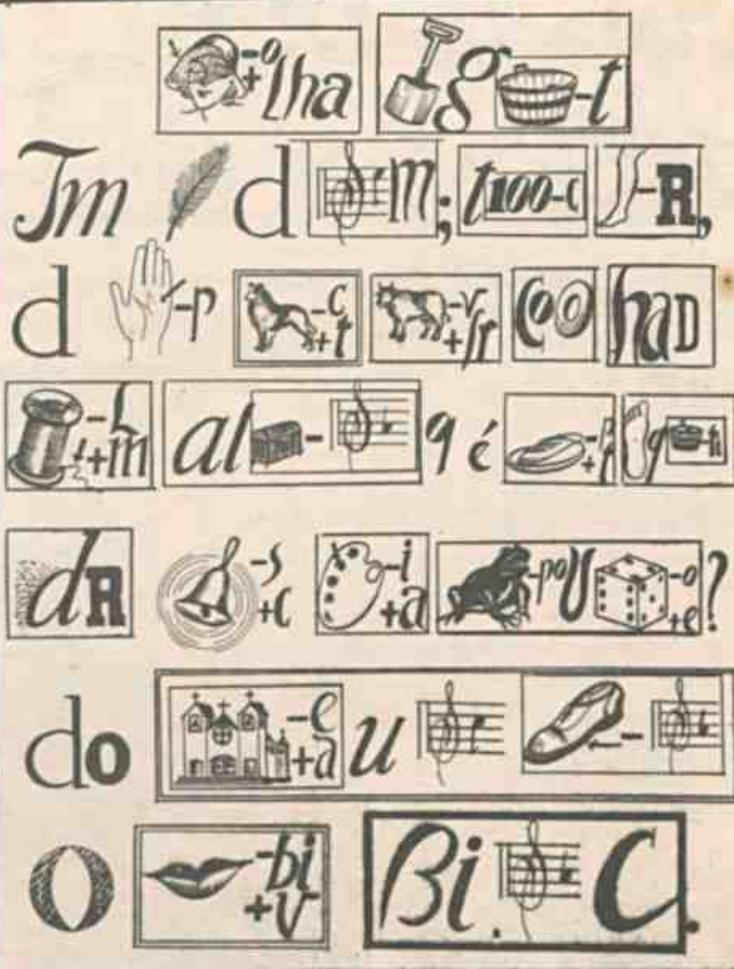 -o +lha g -t
Tm d m; t 100-C -R,
d -p -c +t -v +rr Co haD
-L +m al - q é -p +f g -ti
dR -s +c -i +a -po U -o +e ?
do -e +a u -
O -bi +v Bi. C.